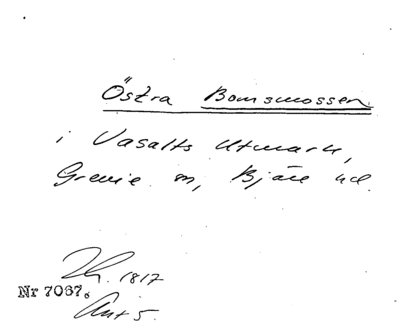 Östra Bomsmossen
i Vasalts Utmark,
Grevie sn, Bjäre hd.
1817
Nr 7067.
Akt 5.